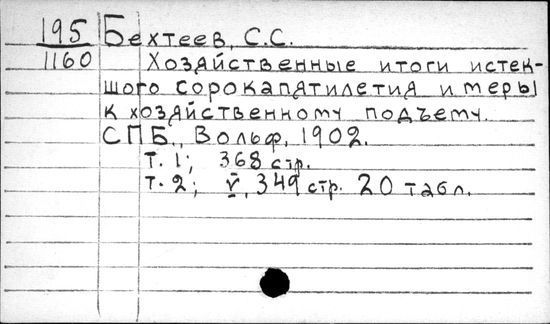 195 Бехтеев, С.С.
1160 Хозяйственные итоги истек-
шего сорокапятилетия и меры
к хозяйственному подъему.
СПБ., Вольф, 1902.
т. 1; 368 стр.
т. 2; V, 349 стр. 20 табл.